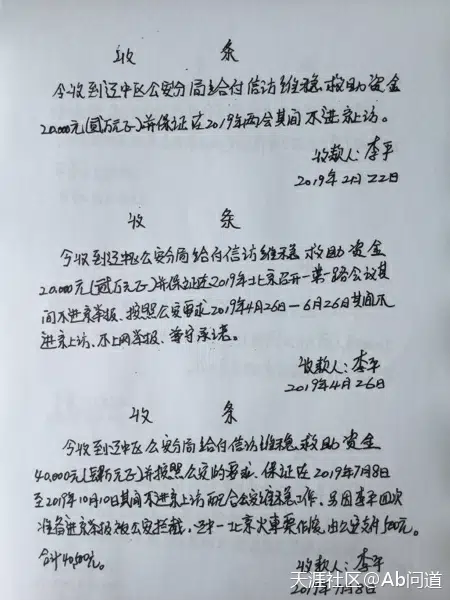 收 条
今收到辽中区公安分局给付信访维稳救助资金
20,000元(贰万元正)并保证在2019年两会其间不进京上访。
收款人:李平
2019年2月22日
收 条
今收到辽中区公安分局给付信访维稳救助资金
20,000元(贰万元正)并保证在2019年北京召开一带一路会议其
间不进京举报、按照公安要求2019年4月26日—6月26日其间不
进京上访、不上网举报、遵守承诺。
收款人:李平
2019年4月26日
收 条
今收到辽中区公安分局给付信访维稳救助资金
40,000元(肆万元正)并按照公安的要求、保证在2019年7月8日
至2019年10月10日其间不进京上访配合公安维稳工作、另因李平四次
准备进京举报被公安拦截,辽中—北京火車票作废,由公安支付500元。
合计40,500元。
收款人:李平
2019年7月8日
天涯社区@Ab问道